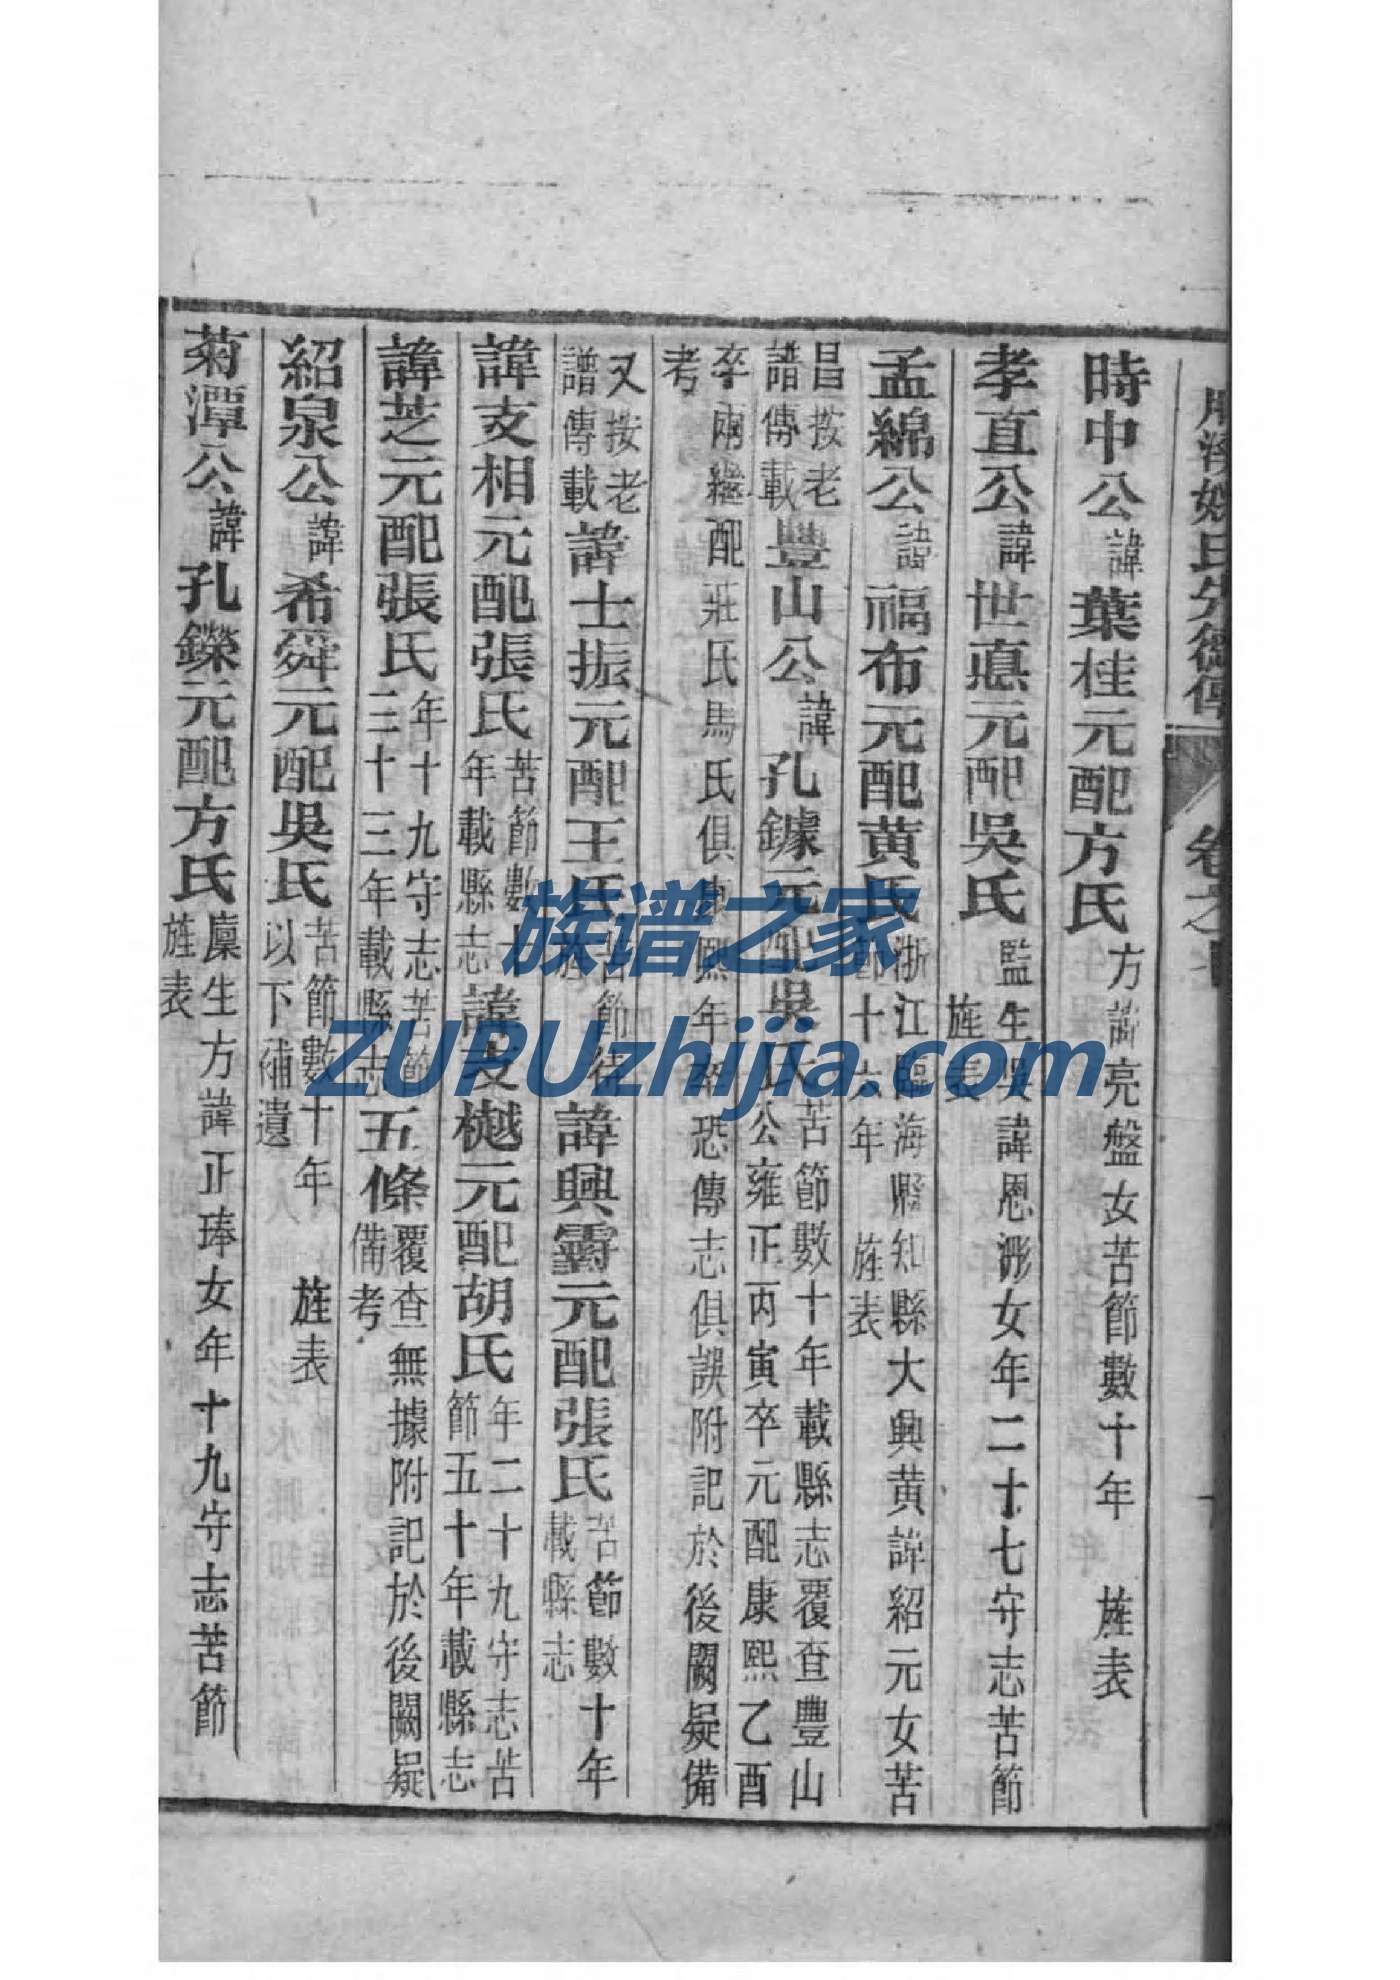 氏先德傳 卷之
時中公諱葉桂元配方氏方諱亮盤女苦節數十年 旌表
孝直公諱世惪元配吳氏監生吳諱恩濴女年二十七守志苦節
旌表
孟綿公諱福布元配黄氏浙江臨海縣知縣大興黄諱紹元女苦
節十六年 旌表
昌按老
譜傳載豐山公諱孔鐻元配吳氏苦節數十年載縣志覆查豐山
公雍正丙寅卒元配康熙乙酉
卒兩繼配莊氏馬氏俱康熙年卒恐傳志俱誤附記於後闕疑備
考
又按老
譜傳載諱士振元配王氏苦節待
旌諱興霨元配張氏苦節數十年
載縣志
諱支相元配張氏苦節數十
年載縣志諱支樾元配胡氏年二十九守志苦
節五十年載縣志
諱芝元配張氏年十九守志苦節
三十三年載縣志五條覆查無據附記於後闕疑
備考
紹泉公諱希舜元配吳氏苦節數十年 旌表
以下補遺
菊潭公諱孔鑅元配方氏廩生方諱正琫女年十九守志苦節
旌表
族谱之家
ZUPUzhijia.com